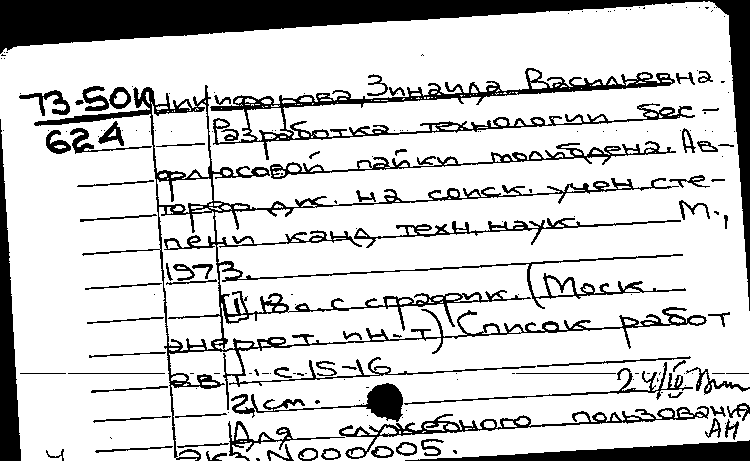 73-50К Никифорова, Зинаида Васильевна.
624 Разработка технологии бес-
флюсовой пайки молибдена. Ав-
тореф. дис. на соиск. учен. сте-
пени канд. техн. наук. М.,
1973.
[1], 18 л. с график. (Моск.
энергет. ин-т) Список работ
авт.: с. 15-16.
21 см. 24/IV
Для служебного пользования
АН
Экз. N000005.